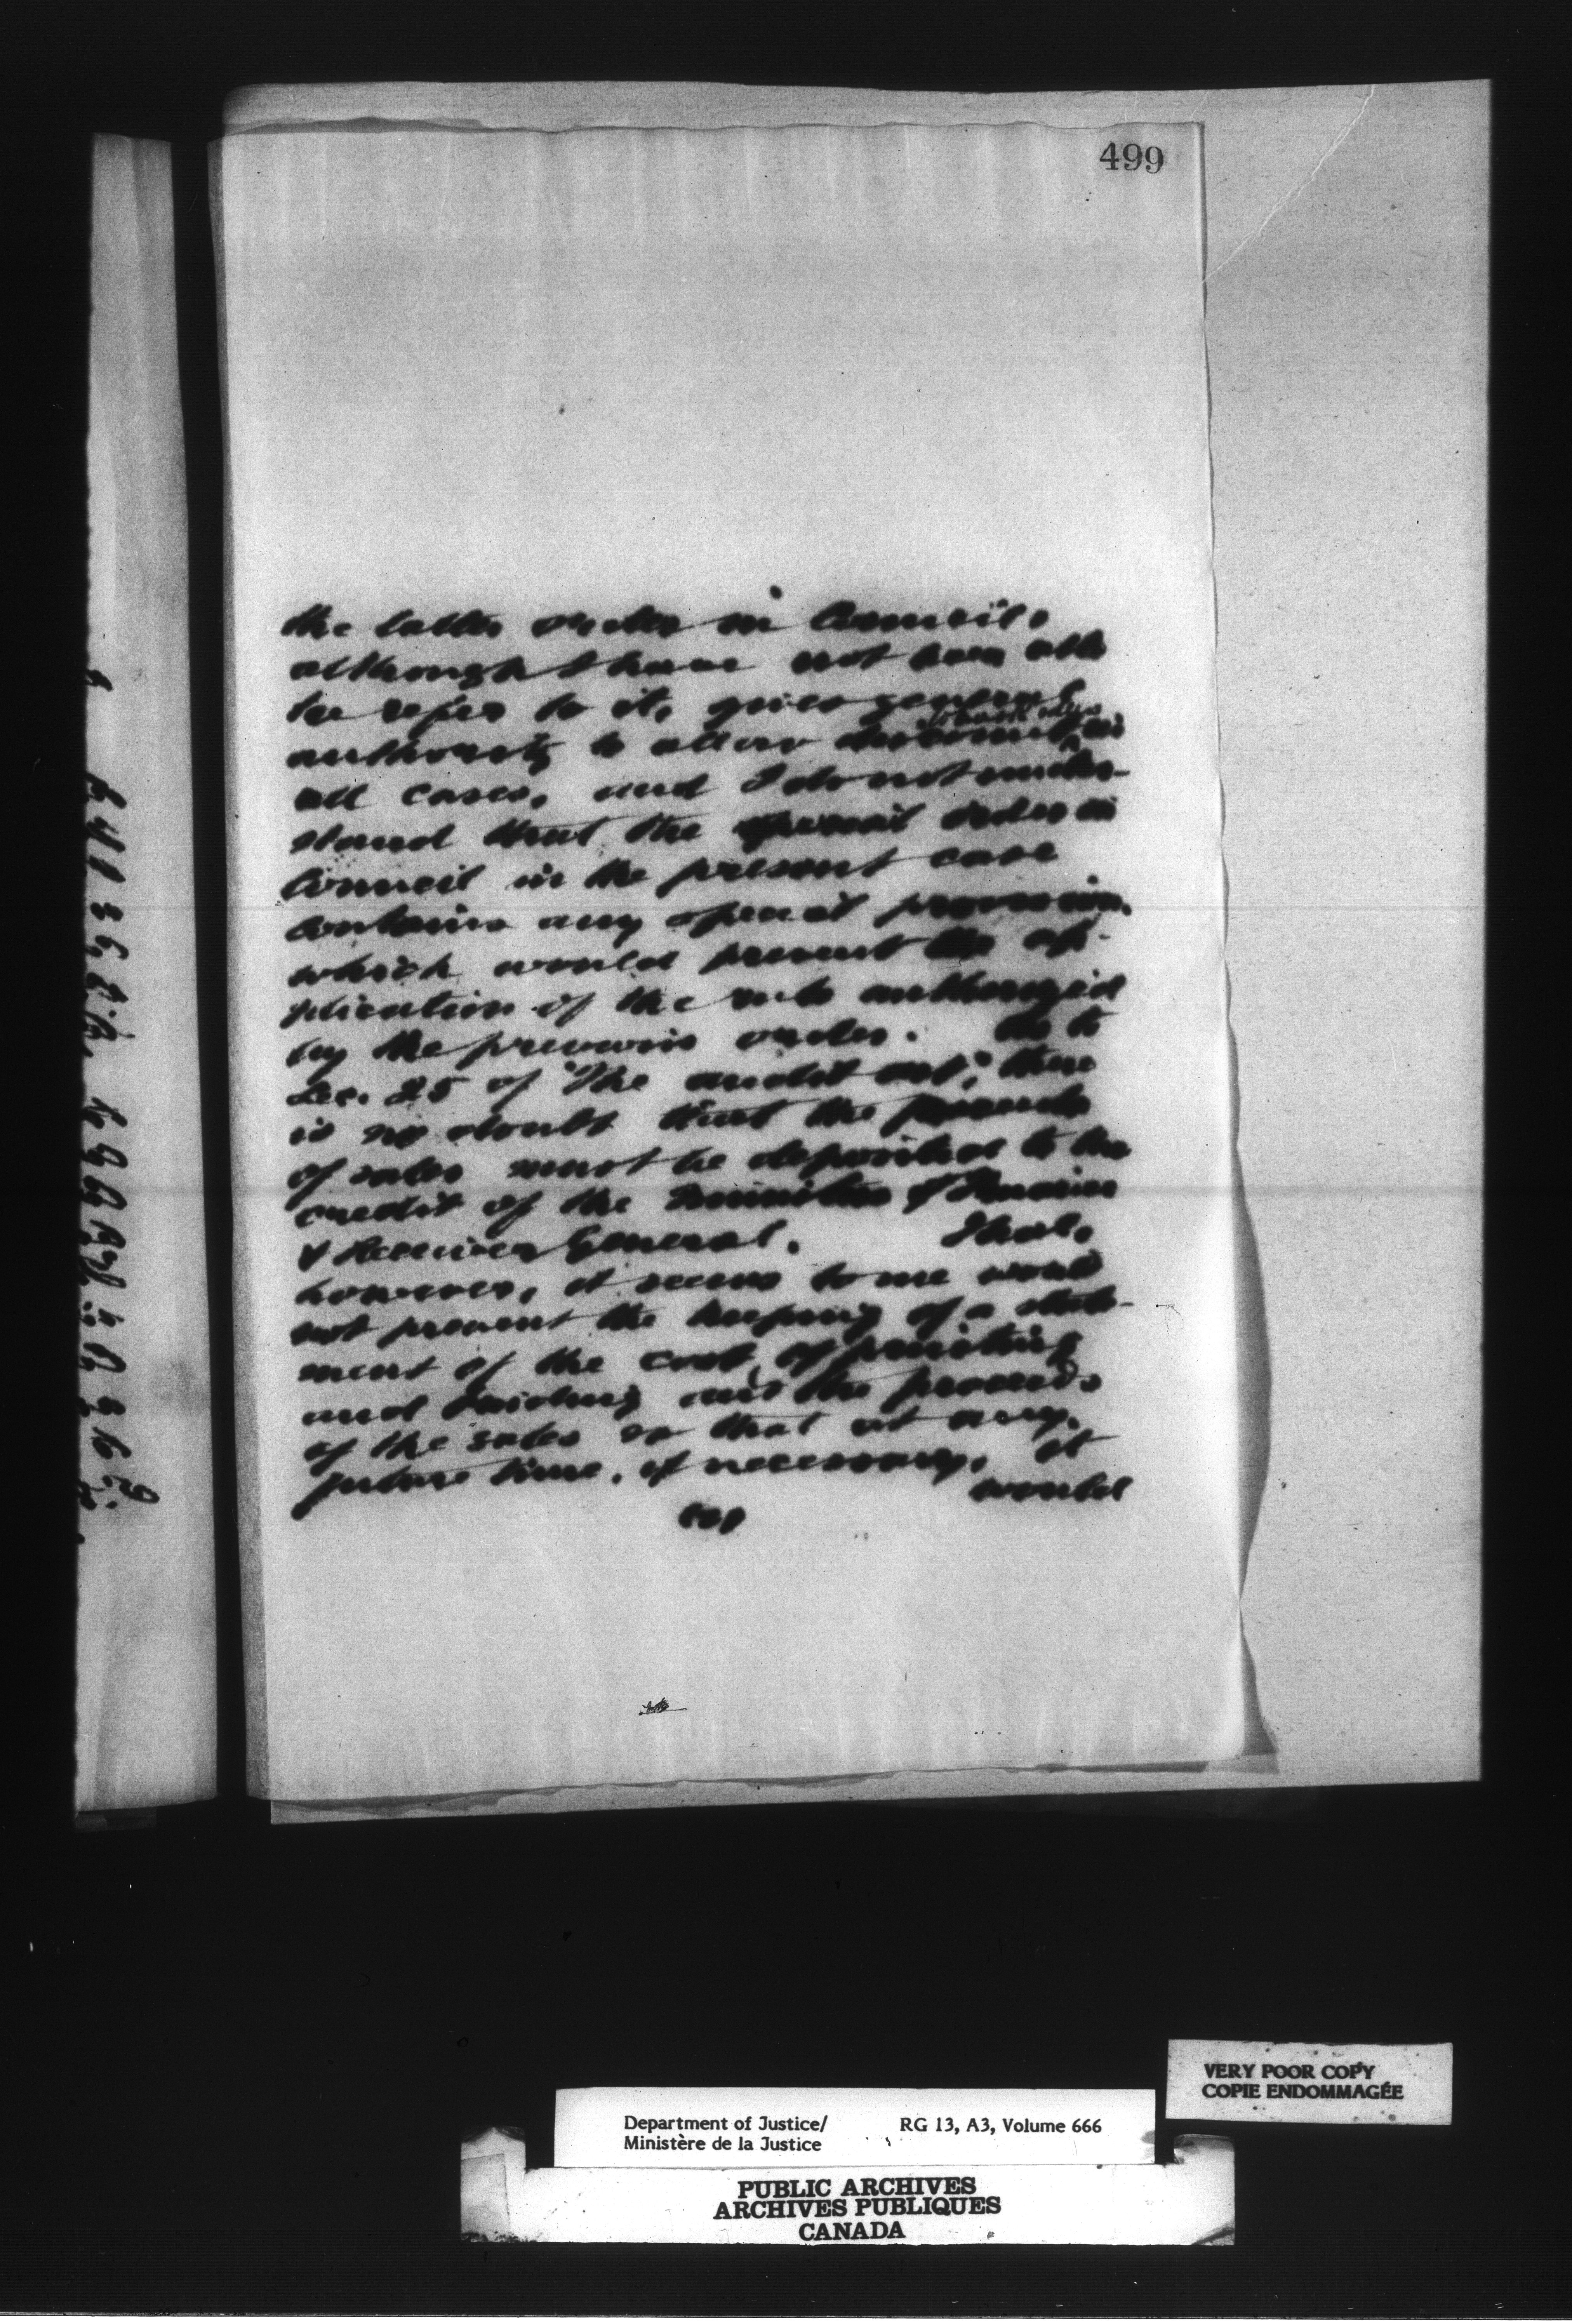 499
the latter order in Council,
although I have not been able
to refer to it, gives general
authority to allow discount in
all cases, and I do not under-
stand that the special order in
Council in the present case
contains any special provision
which would prevent the ap-
plication of the rule authorized
by the previous order. As to
Sec. 25 of "The Audit Act", there
is no doubt that the proceeds
of sales must be deposited to the
credit of the Minister of Finance
& Receiver General. That,
however, it seems to me would
not prevent the keeping of a state-
ment of the cost of printing
and binding and the proceeds
of the sales so that at any
future time, if necessary, it
would
VERY POOR COPY
COPIE ENDOMMAGÉE
Department of Justice/ RG 13, A3, Volume 666
Ministère de la Justice
PUBLIC ARCHIVES
ARCHIVES PUBLIQUES
CANADA